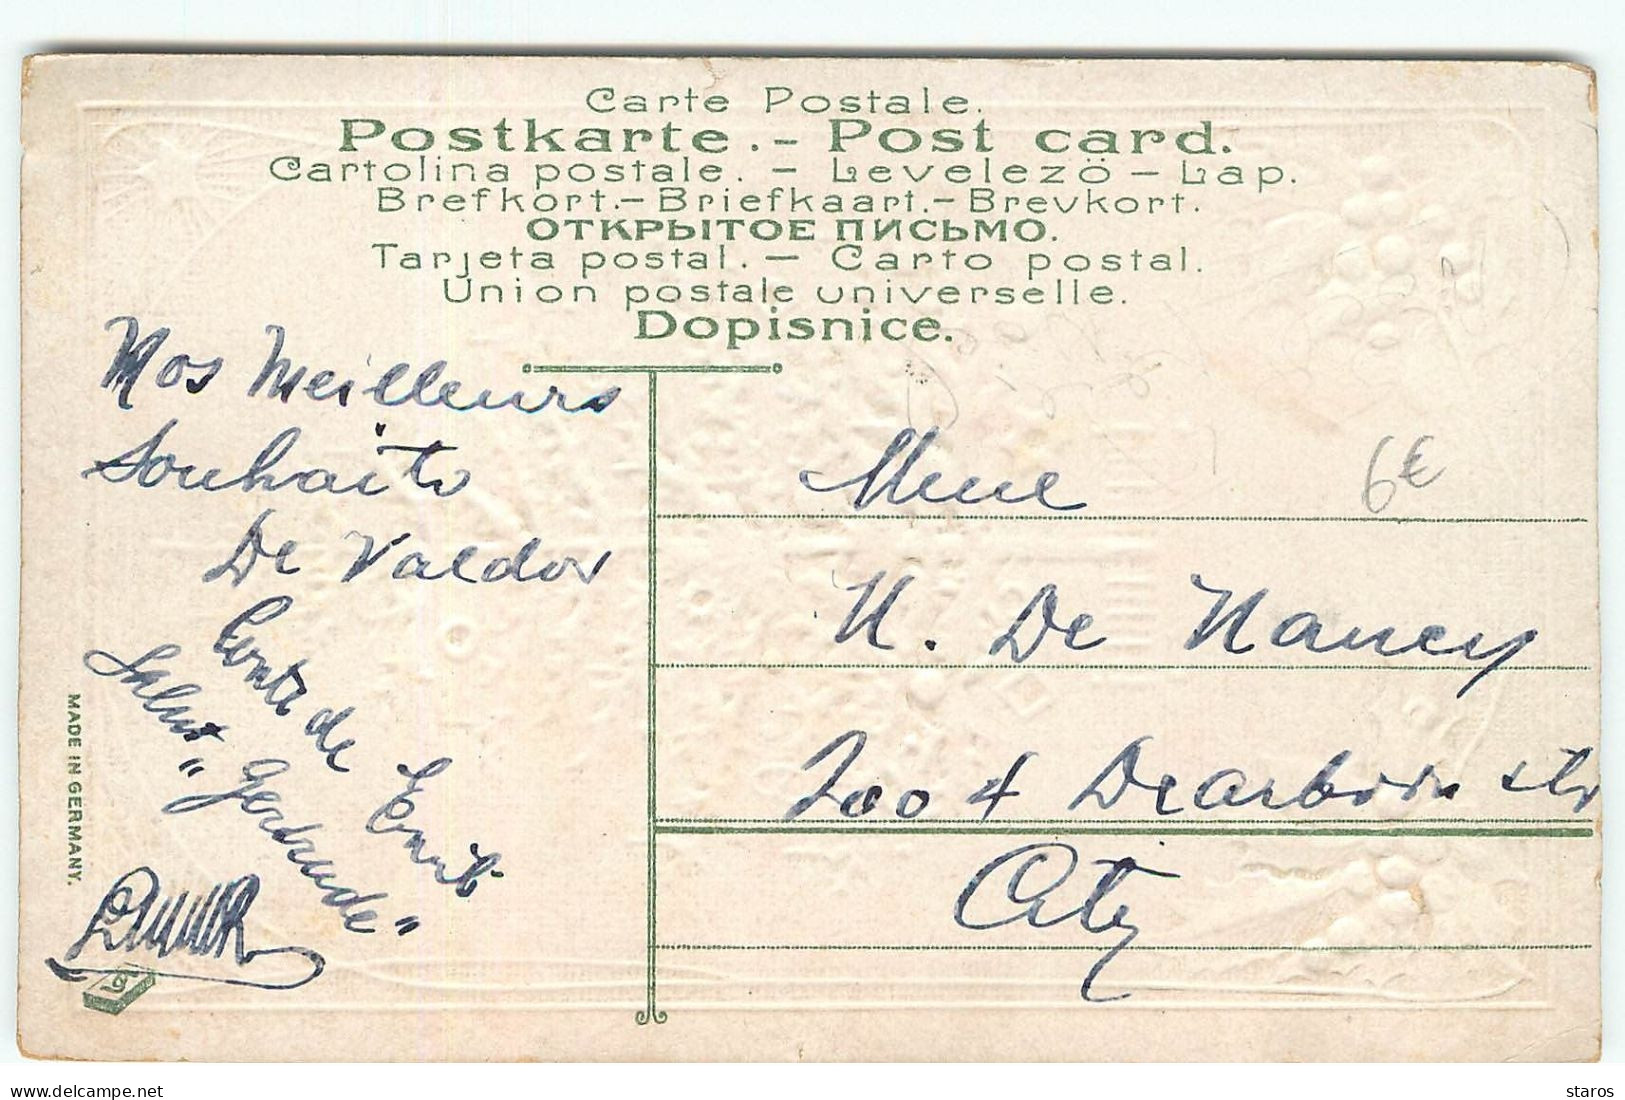 Carte Postale.
Postkarte.- Post card.
Cartolina postale. - Levelezö-Lap.
Brefkort.-Briefkaart.-Brevkort.
ОТКРЫТОЕ ПИСЬМО.
Tarjeta postal. - Carto postal.
Union postale universelle.
Dopisnice.
Nos Meilleurs
Souhaits
De Valdor
Comte de
Salut
"Gertrude"
MADE IN GERMANY.
6€
Mme
H. De Nancy
2004 Dearborn str
City
staros
delcampe.net